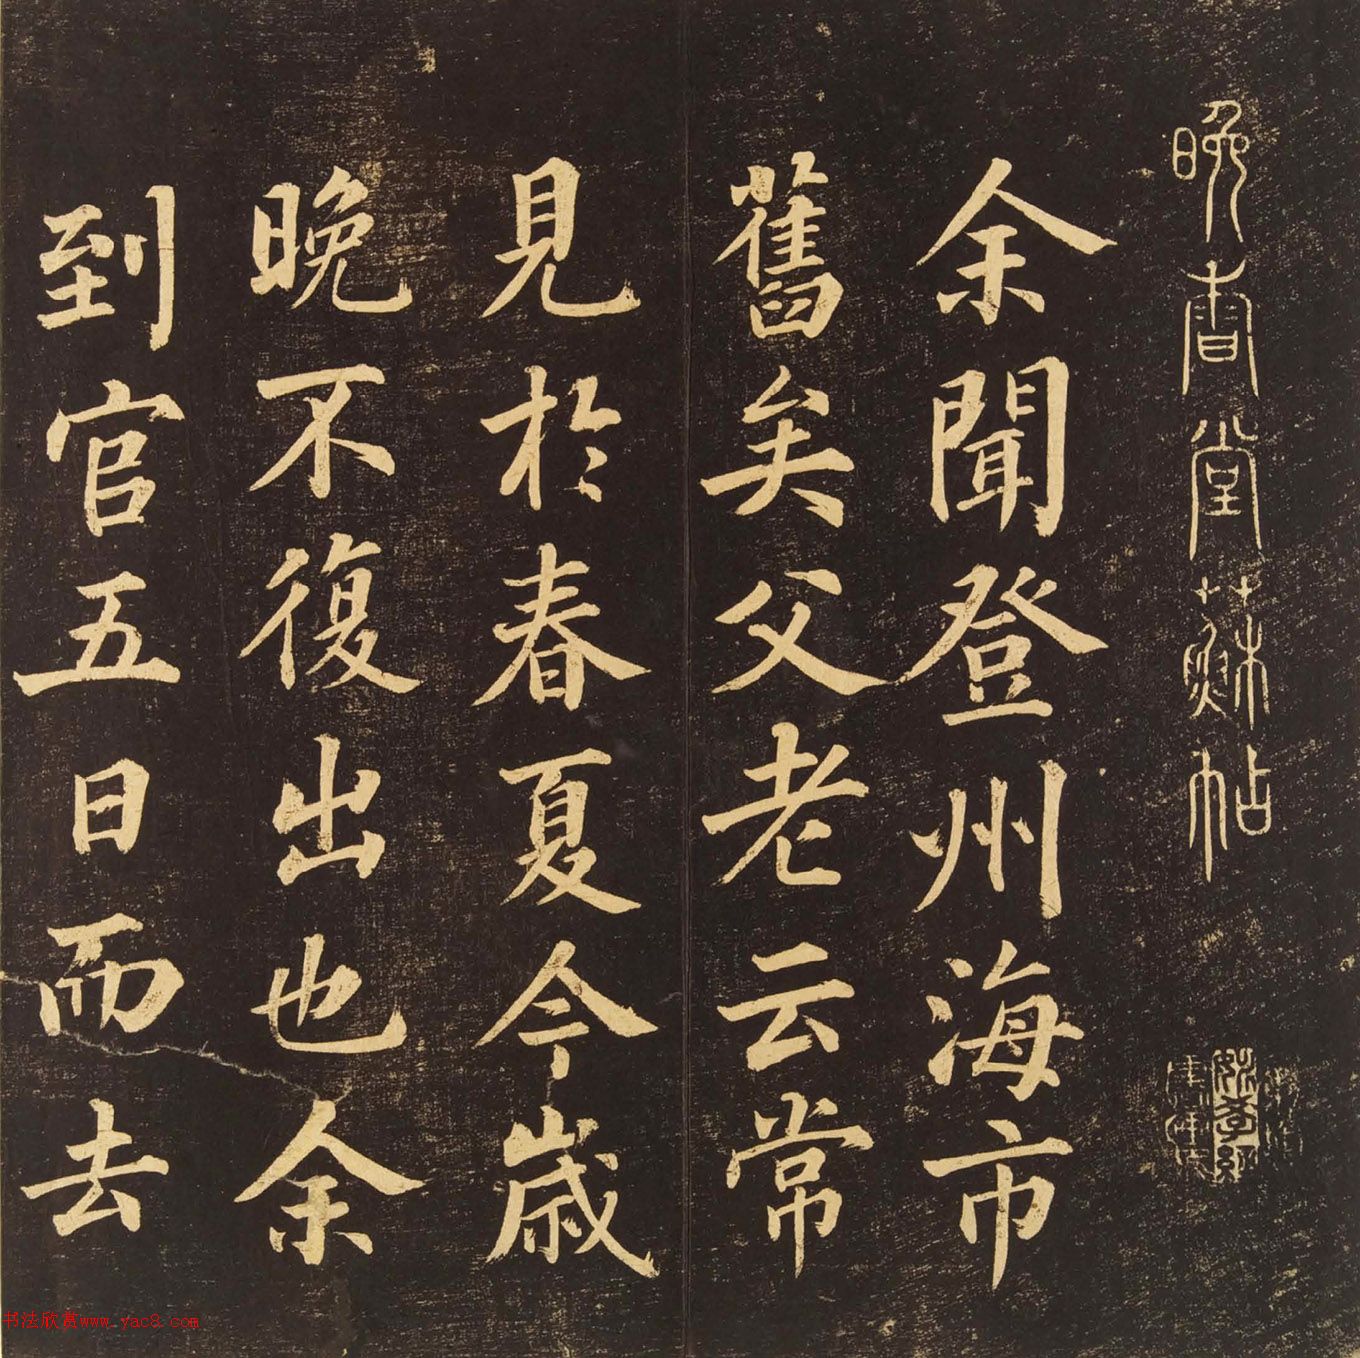 晩香堂蘇帖
余聞登州海市
舊矣父老云常
見於春夏今歲
晚不復出也余
到官五日而去
书法欣赏www.yac8.com